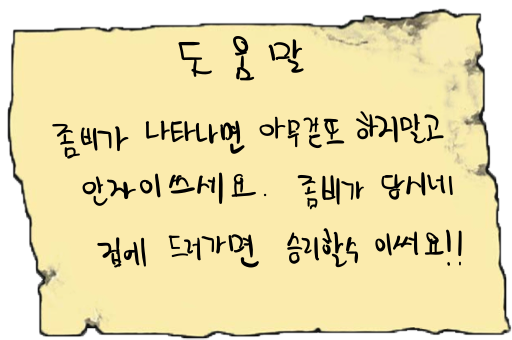 도움말
좀비가 나타나면 아무걷또 하지말고
안자이쓰세요. 좀비가 당시네
집에 드러가면 승리할수 이써요!!